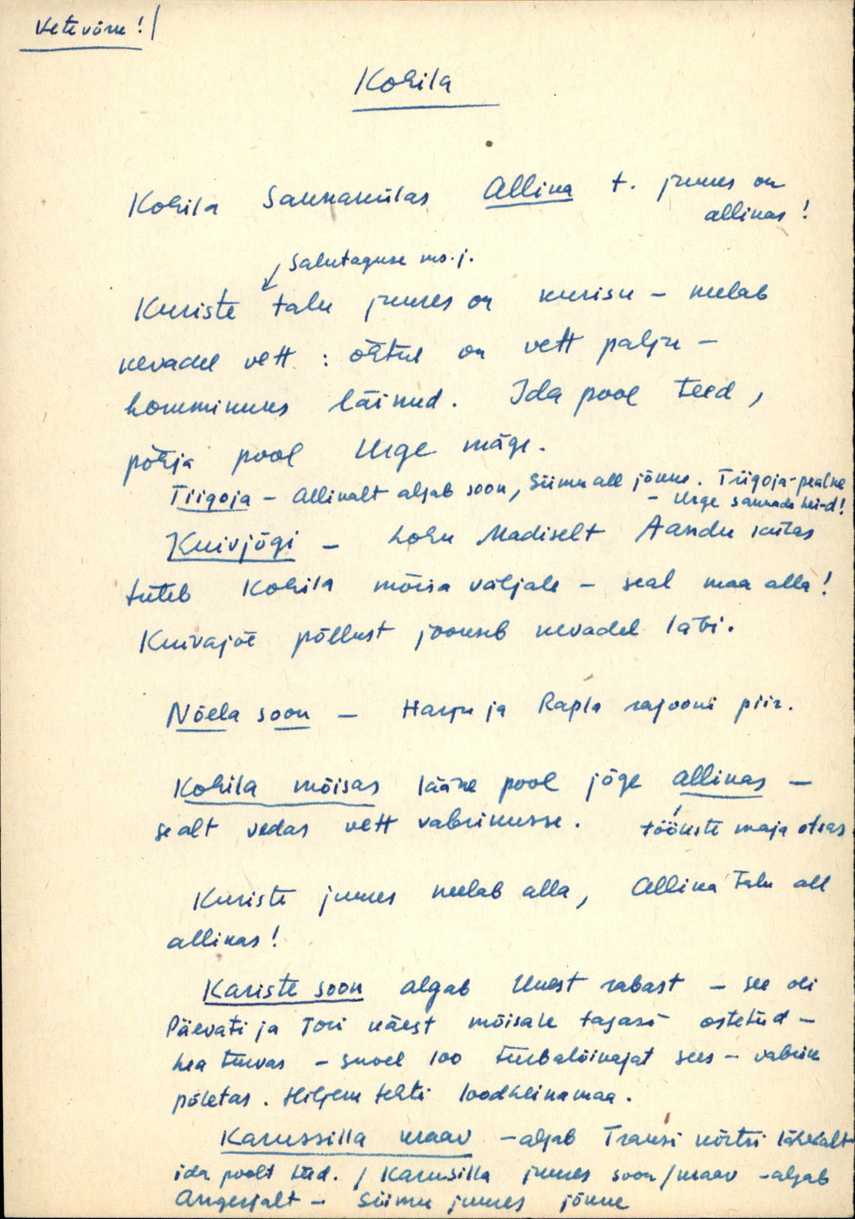 Vetevõrk!/
Kohila
Kohila Saunakülas Allika t. juures on
allikas!
Salutaguse mv.j.
Kuriste talu juures on kurisu – neelab
kevadel vett : õhtul on vett palju –
hommikuks läinud. Ida pool teed,
põhja pool Urge mäge.
Tiigoja – Allikalt algab soon, Siimu all jõkke. Tiigoja-pealne
– Urge saunade hei-d!
Kuivjõgi – Lohu Madiselt Aandu külas
tuleb Kohila mõisa väljale – seal maa alla!
Kuivajõe põllust jookseb kevadel läbi.
Nõela soon – Harju ja Rapla rajooni piir.
Kohila mõisas lääne pool jõge allikas –
sealt vedas vett vabrikusse. tööliste maja otsas
Kuriste juures neelab alla, Allika talu all
allikas!
Kariste soon algab Uuest rabast – see oli
Päevati ja Tori käest mõisale tagasi ostetud –
hea turvas – suvel 100 turbalõikajat sees – vabrik
põletas. Hiljem tehti loodheinamaa.
Karussilla kraav – algab Transi kõrtsi lähedalt
ida poolt teed. / Karusilla juures soon/kraav – algab
Angerjalt – Siimu juures jõkke